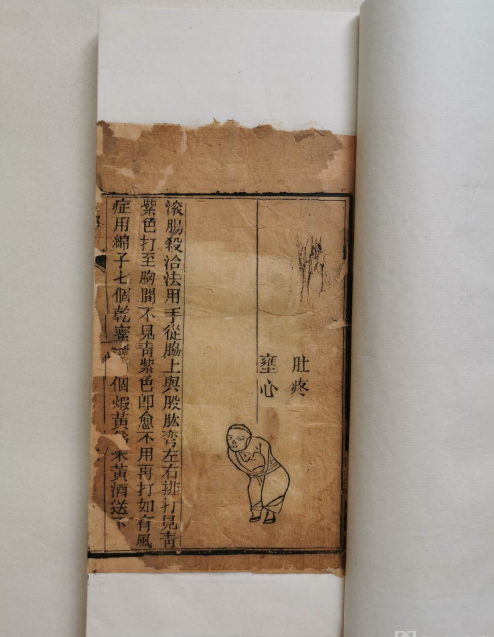 肚疼
壅心
滚腸殺治法用手從腦上與股肱彎左右排打見靑
紫色打至胸間不見靑紫色卽愈不用再打如有風
症用綿子七個乾蜜 個蝦黃 末黃酒送下